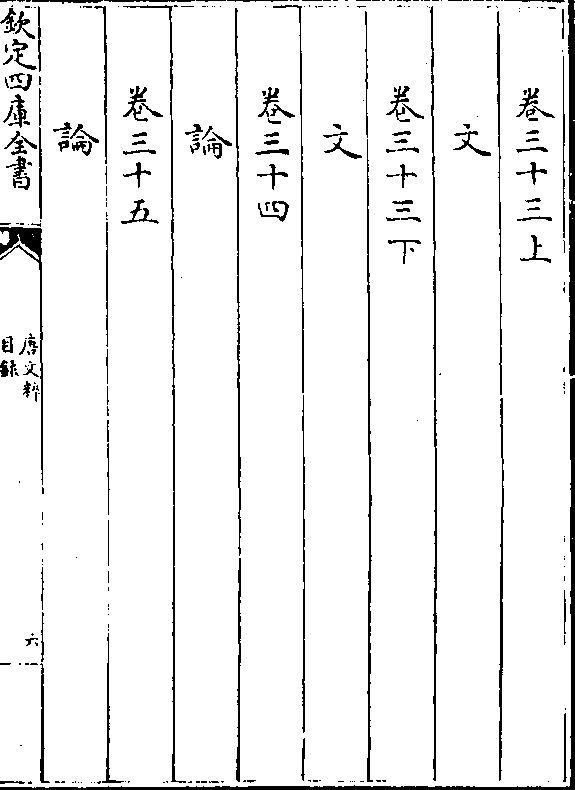 卷三十三上
文
卷三十三下
文
卷三十四
論
卷三十五
論
欽定四庫全書
唐文粹
目錄
六